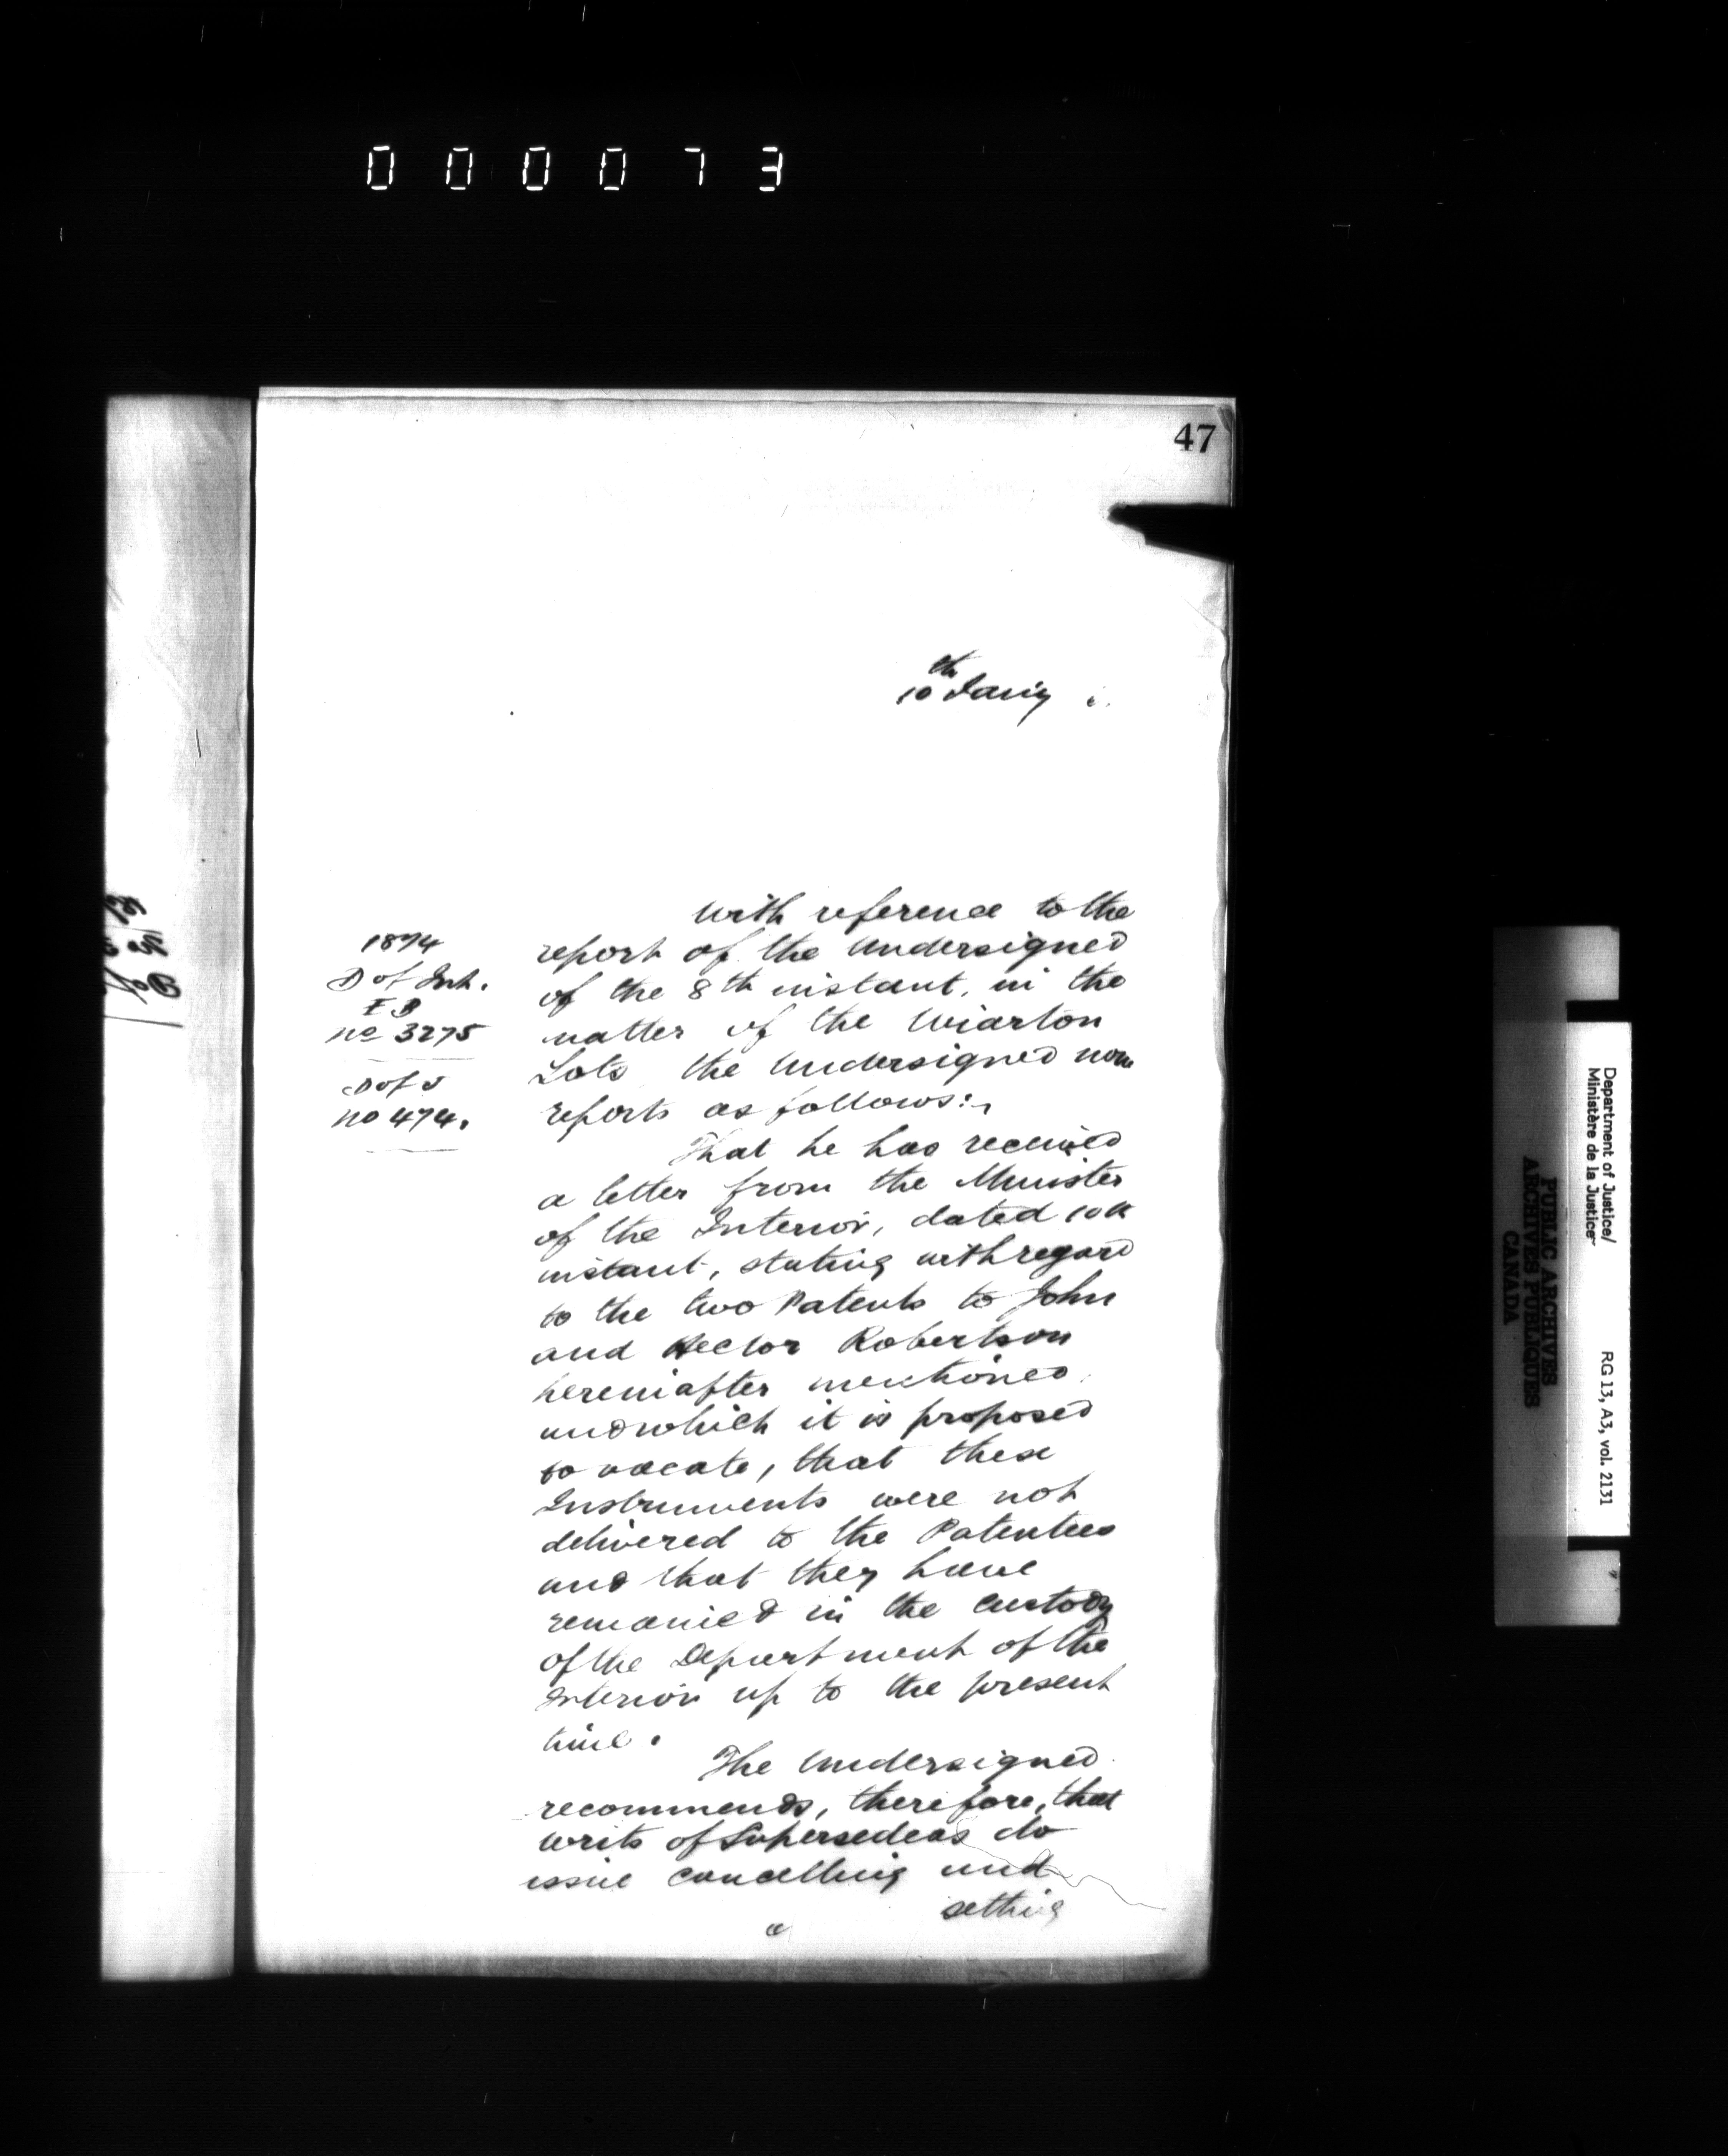 000073
47
10th Jany
With reference to the
report of the undersigned
of the 8th instant, in the
matter of the Wiarton
Lots the undersigned now
reports as follows:-
1874
D of Int.
I B
No 3275
D of J
no 474.
That he has received
a letter from the Minister
of the Interior, dated 10th
instant, stating with regard
to the two Patents to John
and Hector Robertson
hereinafter mentioned,
and which it is proposed
to vacate, that these
Instruments were not
delivered to the Patentees
and that they have
remained in the custody
of the Department of the
Interior up to the present
time.
The Undersigned
recommends, therefore, that
writs of Supersedeas do
issue cancelling and
setting
Department of Justice/
Ministère de la Justice
RG 13, A3, vol. 2131
PUBLIC ARCHIVES
ARCHIVES PUBLIQUES
CANADA